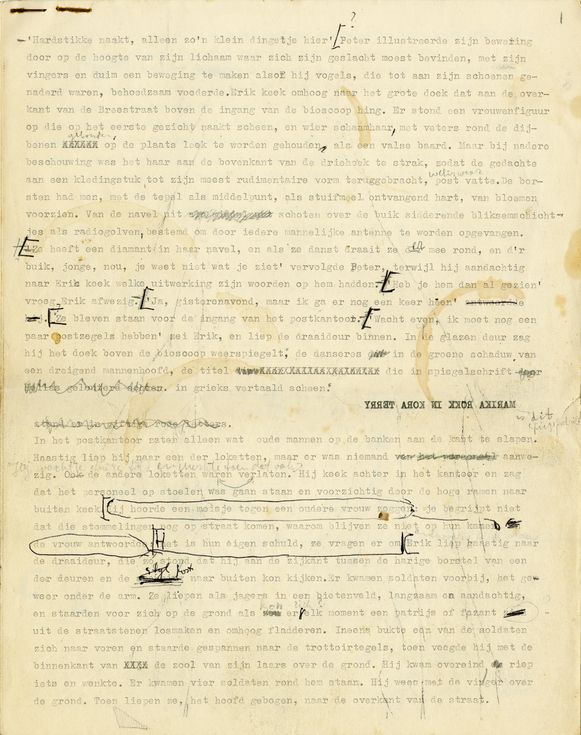 ?
1
'Hardstikke naakt, alleen zo'n klein dingetje hier' Peter illustreerde zijn bewering
door op de hoogte van zijn lichaam waar zich zijn geslacht moest bevinden, met zijn
vingers en duim een beweging te maken alsof hij vogels, die tot aan zijn schoenen ge-
naderd waren, behoedzaam voederde. Erik keek omhoog naar het grote doek dat aan de over-
kant van de Breestraat boven de ingang van de bioscoop hing. Er stond een vrouwenfiguur
op die op het eerste gezicht naakt scheen, en wier schaamhaar, met vaters rond de dij-
benen XXXXXX op de plaats leek te worden gehouden, als een valse baard. Maar bij nadere
beschouwing was het haar aan de bovenkant van de driehoek te strak, zodat de gedachte
aan een kledingstuk tot zijn meest rudimentaire vorm teruggebracht, post vatte. De bor-
sten had men, met de tepel als middelpunt, als stuifmeel ontvangend hart, van bloemen
voorzien. Van de navel uit schoten over de buik zinderende bliksemschicht-
jes als radiogolven, bestemd om door iedere mannelijke antenne te worden opgevangen.
'Ze heeft een diamant in haar navel, en als ze danst draait ze mee rond, en d'r
buik, jonge, nou, je weet niet wat je ziet' vervolgde Peter, terwijl hij aandachtig
naar Erik keek welke uitwerking zijn woorden op hem hadden. 'Heb je hem dan al gezien'
vroeg Erik afwezig. 'Ja, gisteravond, maar ik ga er nog een keer heen'
Ze bleven staan voor de ingang van het postkantoor. 'Wacht even, ik moet nog een
paar postzegels hebben' zei Erik, en liep de draaideur binnen. In de glazen deur zag
hij het doek boven de bioscoop weerspiegelt. de danseres in de groene schaduw van
een dreigend mannenhoofd, de titel XXXXXXXXXXXXXXXXXX die in spiegelschrift
in grieks vertaald scheen.
MARIKA ROKK IN KORA TERRY
is dit
In het postkantoor zaten alleen wat oude mannen op de banken aan de kant te slapen.
Haastig liep hij naar een der loketten, maar er was niemand aanwe-
zig. Ook de andere loketten waren verlaten. Hij keek achter in het kantoor en zag
dat het personeel op stoelen was gaan staan en voorzichtig door de hoge ramen naar
buiten keek. Hij hoorde een meisje tegen een oudere vrouw zeggen: je begrijpt niet
dat die stommelingen nog op straat komen, waarom blijven ze niet op hun kamer
de vrouw antwoordde: Het is hun eigen schuld, ze vragen er om. Erik liep haastig naar
de draaideur, die zo stond dat hij aan de zijkant tussen de harige borstel van een
der deuren en de naar buiten kon kijken. Er kwamen soldaten voorbij, het ge-
weer onder de arm. Ze liepen als jagers in een bietenveld, langzaam en aandachtig,
en staarden voor zich op de grond als er elk moment een patrijs of fazant
uit de straatstenen losmaken en omhoog fladderen. Ineens bukte een van de soldaten
zich naar voren en staarde gespannen naar de trottoirtegels, toen veegde hij met de
binnenkant van XXXX de zool van zijn laars over de grond. Hij kwam overeind, riep
iets en wenkte. Er kwamen vier soldaten rond hem staan. Hij wees met de vinger over
de grond. Toen liepen ze, het hoofd gebogen, naar de overkant van de straat.